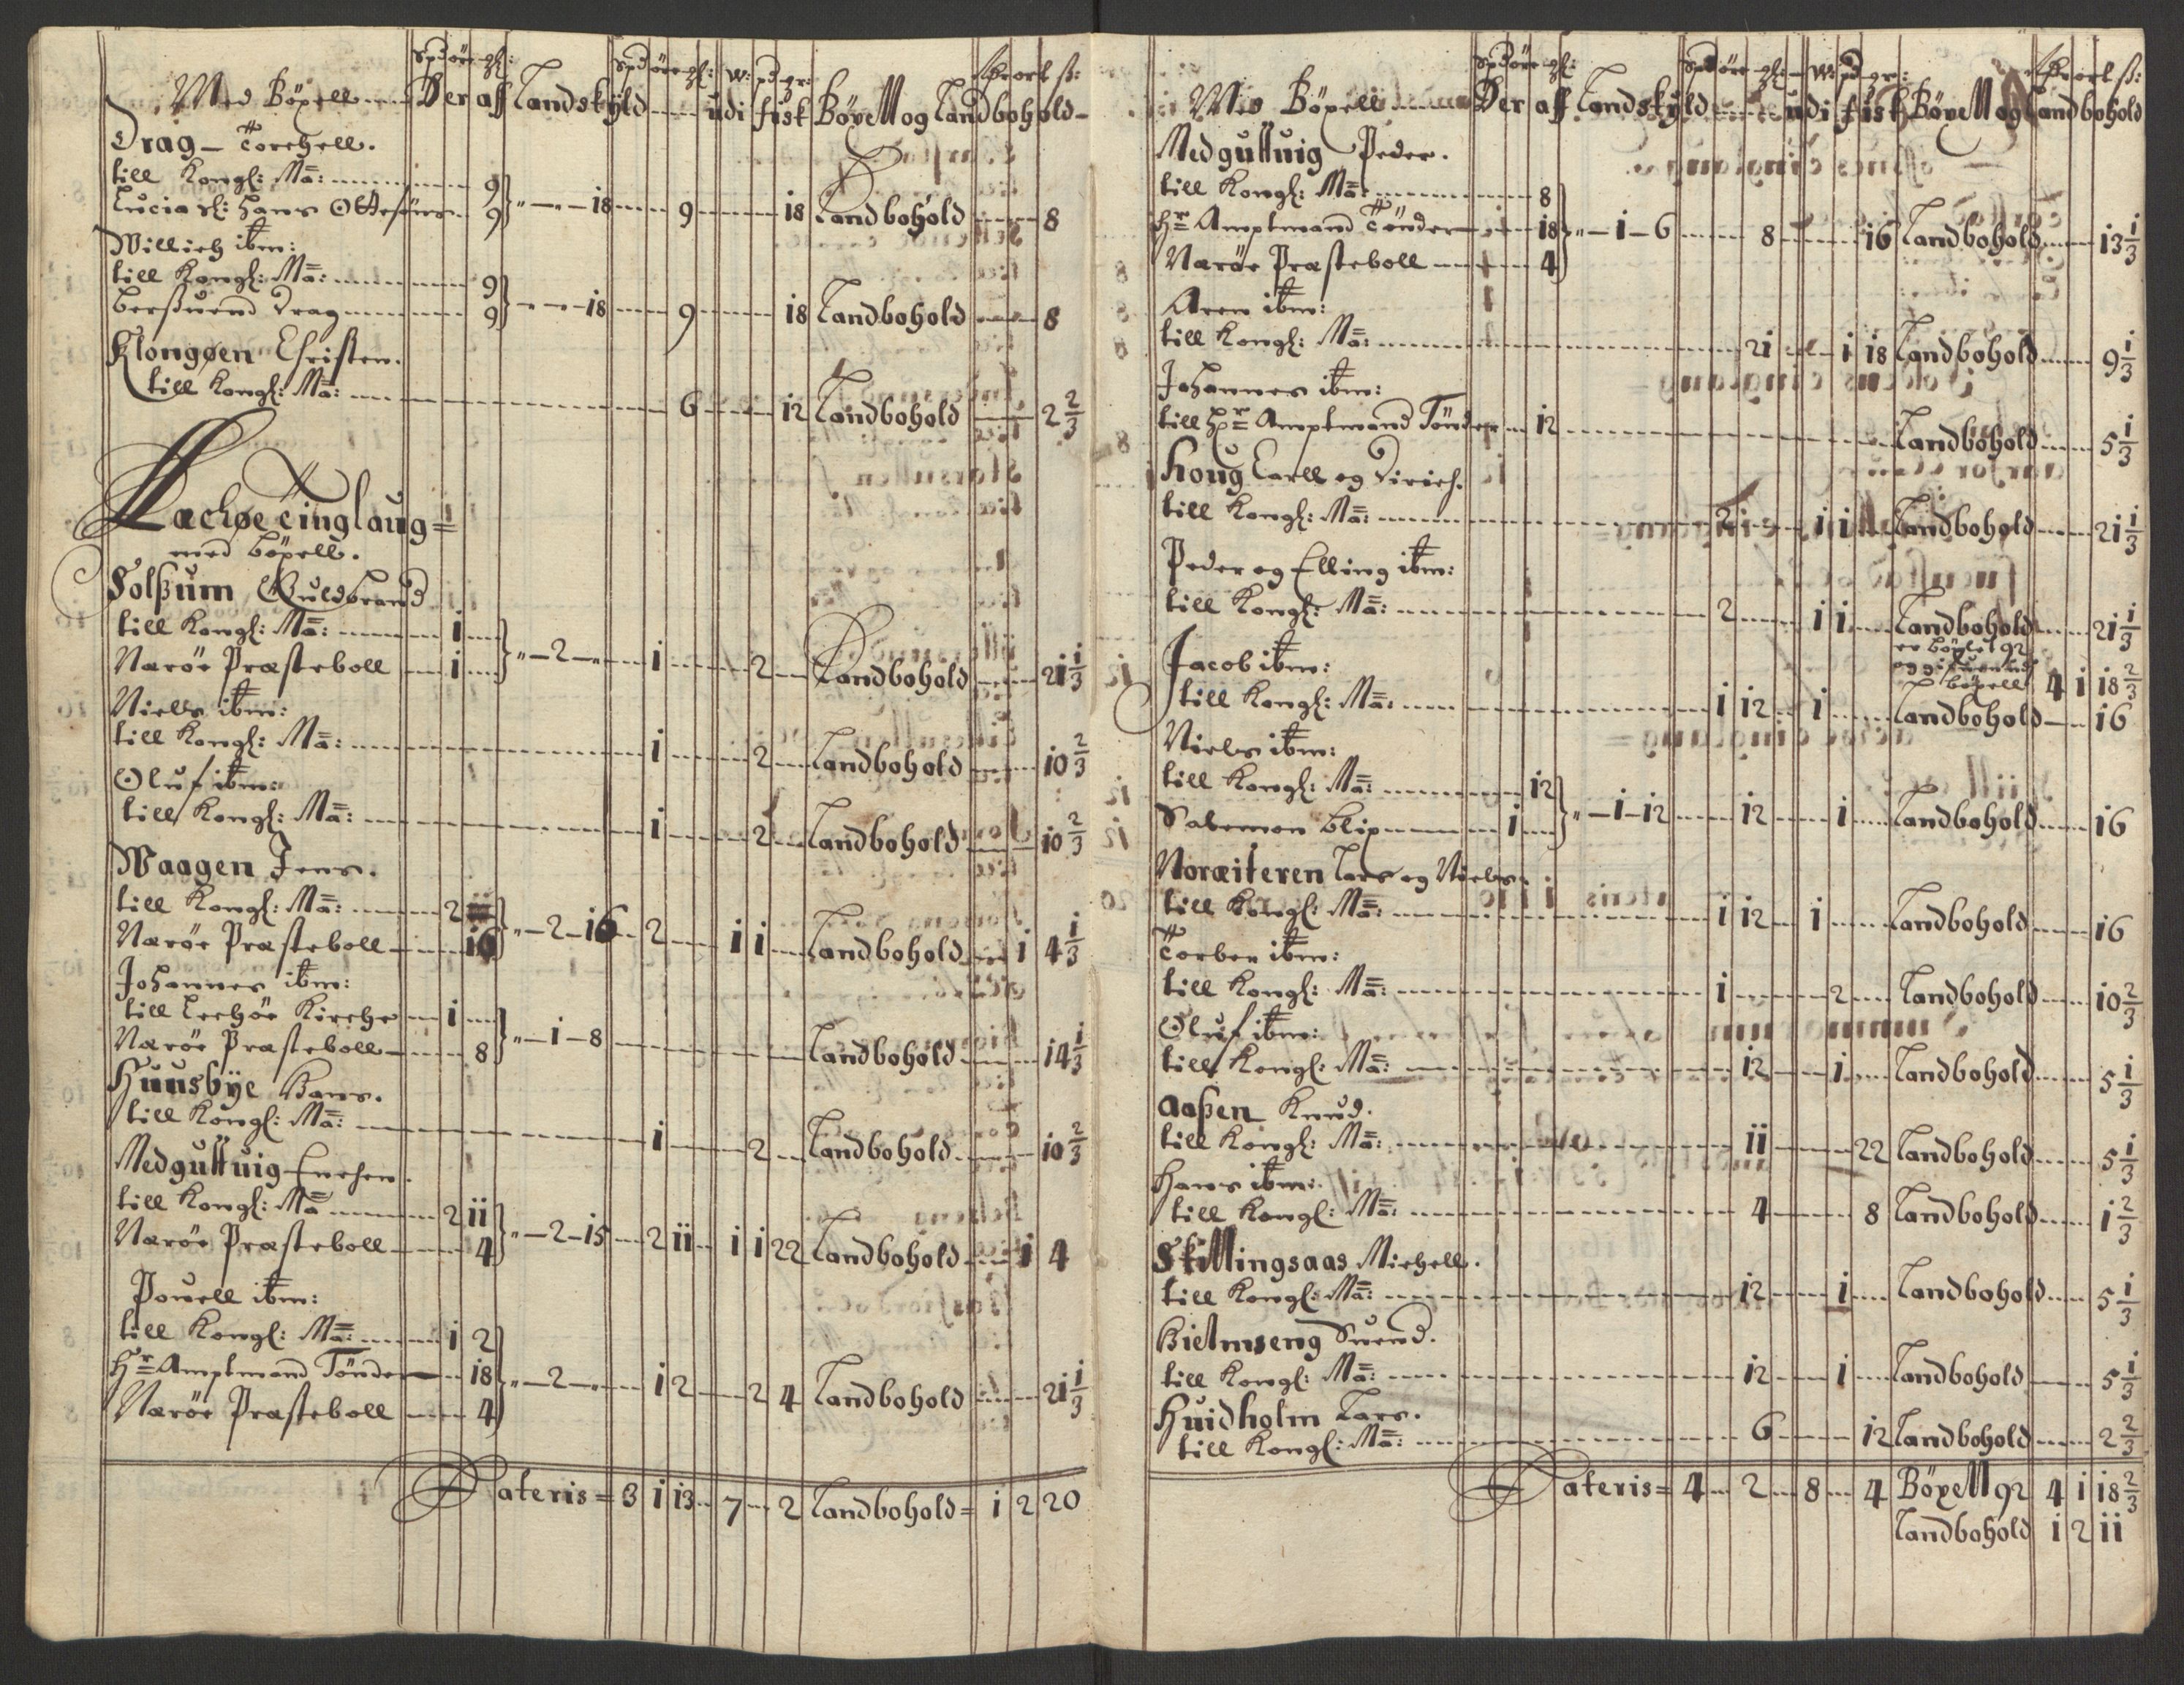 Spd öre ql: Spd öre ql: w: pd gr: ort ß:
Med Böxell Der aff Landskyld udi fisk Böxell og Landbohold
Drag Torchell.
till Kongl: Ma: 9
Lucia sl: Hans 9 } „ — „ — 18 9 18 Landbohold 8
Willich ibm:
till Kongl: Ma: 9
Berßuend Drag 9 } „ — „ — 18 9 18 Landbohold 8
Klongøen Christen.
till Kongl: Ma: 6 12 Landbohold 2 2/3
Læchøe Tinglaug =
med böxell.
Solßum Guldbrand
till Kongl: Ma: 1
Næröe Præsteboll 1 } „ — 2 — „ 1 2 Landbohold 21 1/3
Niels ibm:
till Kongl: Ma: 1 2 Landbohold 10 2/3
Oluf ibm:
till Kongl: Ma: 1 2 Landbohold 10 2/3
Waagen Jens.
till Kongl: Ma: 2
Næröe Præsteboll 16 } „ — 2 — 16 2 1 1 Landbohold 1 4 1/3
Johannes ibm:
till Lechöe Kirche 1
Næröe Præsteboll 8 } „ — 1 — 8 Landbohold 14 1/3
Huusbÿe Hans.
till Kongl: Ma: 1 2 Landbohold 10 2/3
Medguttuig Enchen.
till Kongl: Ma 2 11
Næröe Præsteboll 4 } „ — 2 — 15 2 11 1 1 22 Landbohold 1 4
Powell ibm:
till Kongl: Ma: 1 2
Hr Amptmand Tönder 18 } „ — 2 — „ 1 2 2 4 Landbohold 21 1/3
Næröe Præsteboll 4
Lateris = 3 1 13 7 2 Landbohold = 1 2 20
Spd öre ql: Spd öre ql: w: pd gr: ort ß:
Med Böxell Der aff Landskyld udi fisk Böxell og Landbohold
Medguttuig Peder.
till Kongl: Ma: 8
Hr Amptmand Tönder 18 } „ — 1 — 6 8 16 Landbohold 13 1/3
Næröe Præsteboll 4
Aren ibm:
till Kongl: Ma: 21 1 18 Landbohold 9 1/3
Johannes ibm:
till Hr Amptmand Tönder 12 Landbohold 5 1/3
Houg Carll og Dirich.
till Kongl: Ma: 2 1 1 Landbohold 21 1/3
Peder og Elling ibm:
till Kongl: Ma: 2 1 1 Landbohold 21 1/3
er böxlet 92
Jacob ibm:
og
böxell 4 1 18 2/3
till Kongl: Ma: 1 12 1 Landbohold 16
Niels ibm:
till Kongl: Ma: 12
Salemon Blix 1 } „ — 1 — 12 12 1 Landbohold 16
Noræiteren Lars og Niels.
till Kongl: Ma: 1 12 1 Landbohold 16
Torber ibm:
till Kongl: Ma: 1 2 Landbohold 10 2/3
Oluf ibm:
till Kongl: Ma: 12 1 Landbohold 5 1/3
Aaßen Knud.
till Kongl: Ma: 11 22 Landbohold 5 1/3
Hans ibm:
till Kongl: Ma: 4 8 Landbohold 1 2/3
Skillingsaas Michell.
till Kongl: Ma: 12 1 Landbohold 5 1/3
Hielmseng Suend.
till Kongl: Ma: 12 1 Landbohold 5 1/3
Huidholm Lars.
till Kongl: Ma: 6 12 Landbohold 2 2/3
Lateris = 4 2 8 4 Böxell 92 4 1 18 2/3
Landbohold 1 2 11